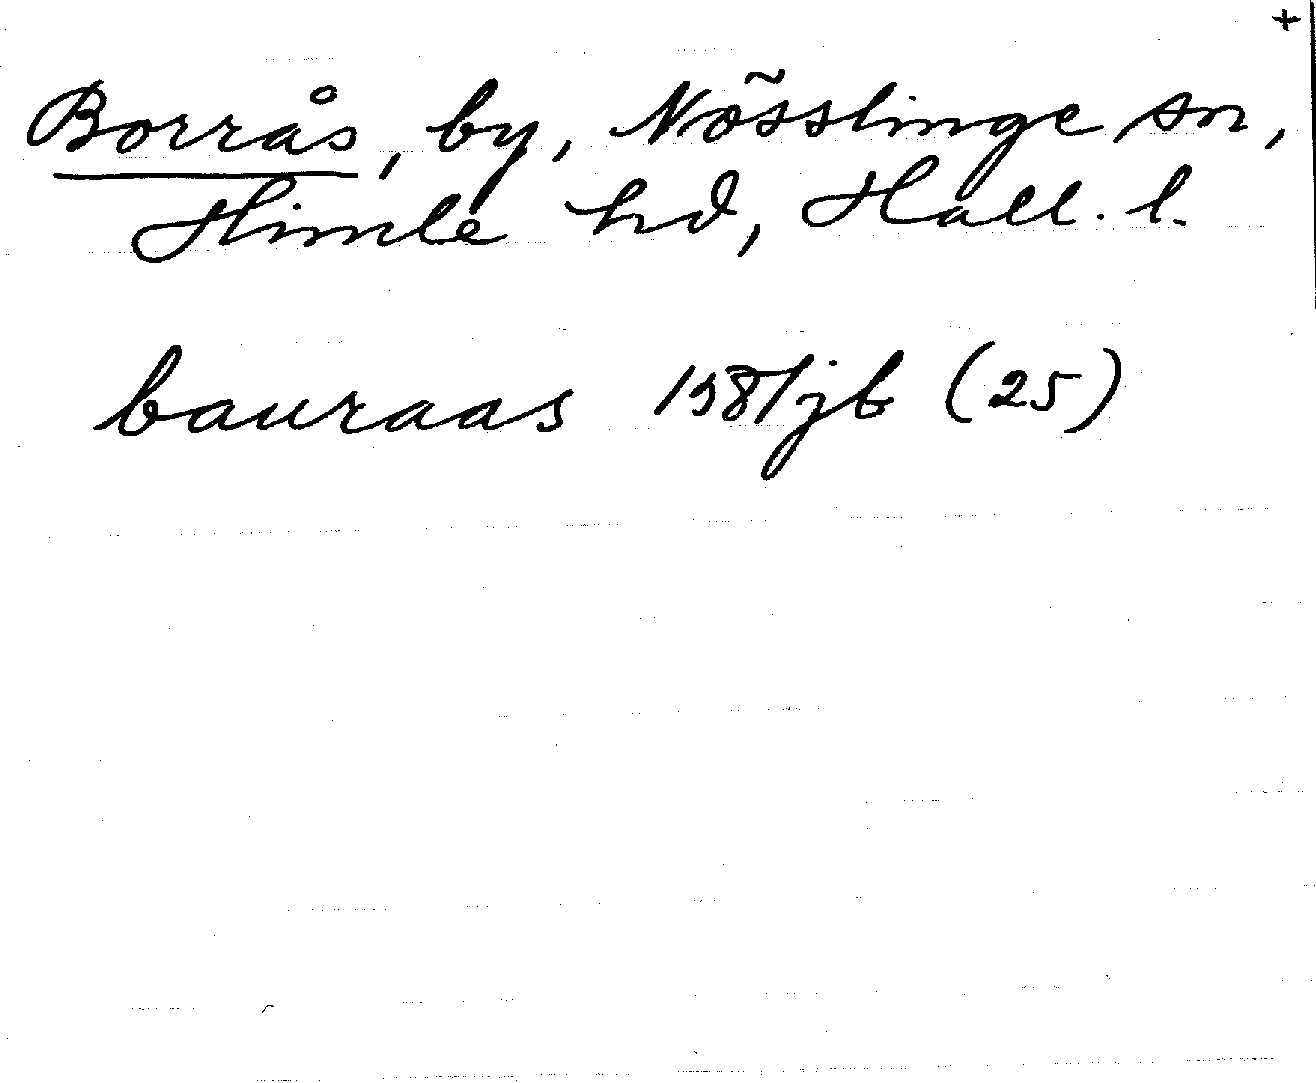 +
Borrås, by, Nösslinge sn,
Himle hd, Hall. l.
bauraas 1981 jb (25)